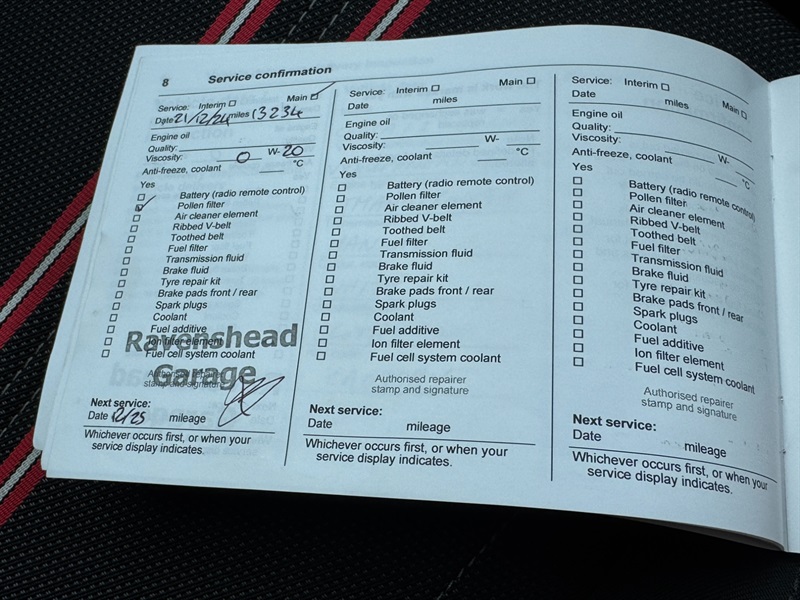 8 Service confirmation
Service: Interim ☐ Main ☑
Date 21/12/24 miles 13234
Engine oil
Quality:
Viscosity: 0 W- 20
Anti-freeze, coolant °C
Yes
☐ Battery (radio remote control)
☑ Pollen filter
☐ Air cleaner element
☐ Ribbed V-belt
☐ Toothed belt
☐ Fuel filter
☐ Transmission fluid
☐ Brake fluid
☐ Tyre repair kit
☐ Brake pads front / rear
☐ Spark plugs
☐ Coolant
☐ Fuel additive
☐ Ion filter element
☐ Fuel cell system coolant
Ravenshead
Garage
Authorised repairer
stamp and signature
Next service:
Date 12/25 mileage
Whichever occurs first, or when your
service display indicates.
Service: Interim ☐ Main ☐
Date miles
Engine oil
Quality:
Viscosity: W-
Anti-freeze, coolant °C
Yes
☐ Battery (radio remote control)
☐ Pollen filter
☐ Air cleaner element
☐ Ribbed V-belt
☐ Toothed belt
☐ Fuel filter
☐ Transmission fluid
☐ Brake fluid
☐ Tyre repair kit
☐ Brake pads front / rear
☐ Spark plugs
☐ Coolant
☐ Fuel additive
☐ Ion filter element
☐ Fuel cell system coolant
Authorised repairer
stamp and signature
Next service:
Date mileage
Whichever occurs first, or when your
service display indicates.
Service: Interim ☐ Main ☐
Date miles
Engine oil
Quality:
Viscosity: W-
Anti-freeze, coolant °C
Yes
☐ Battery (radio remote control)
☐ Pollen filter
☐ Air cleaner element
☐ Ribbed V-belt
☐ Toothed belt
☐ Fuel filter
☐ Transmission fluid
☐ Brake fluid
☐ Tyre repair kit
☐ Brake pads front / rear
☐ Spark plugs
☐ Coolant
☐ Fuel additive
☐ Ion filter element
☐ Fuel cell system coolant
Authorised repairer
stamp and signature
Next service:
Date mileage
Whichever occurs first, or when your
service display indicates.